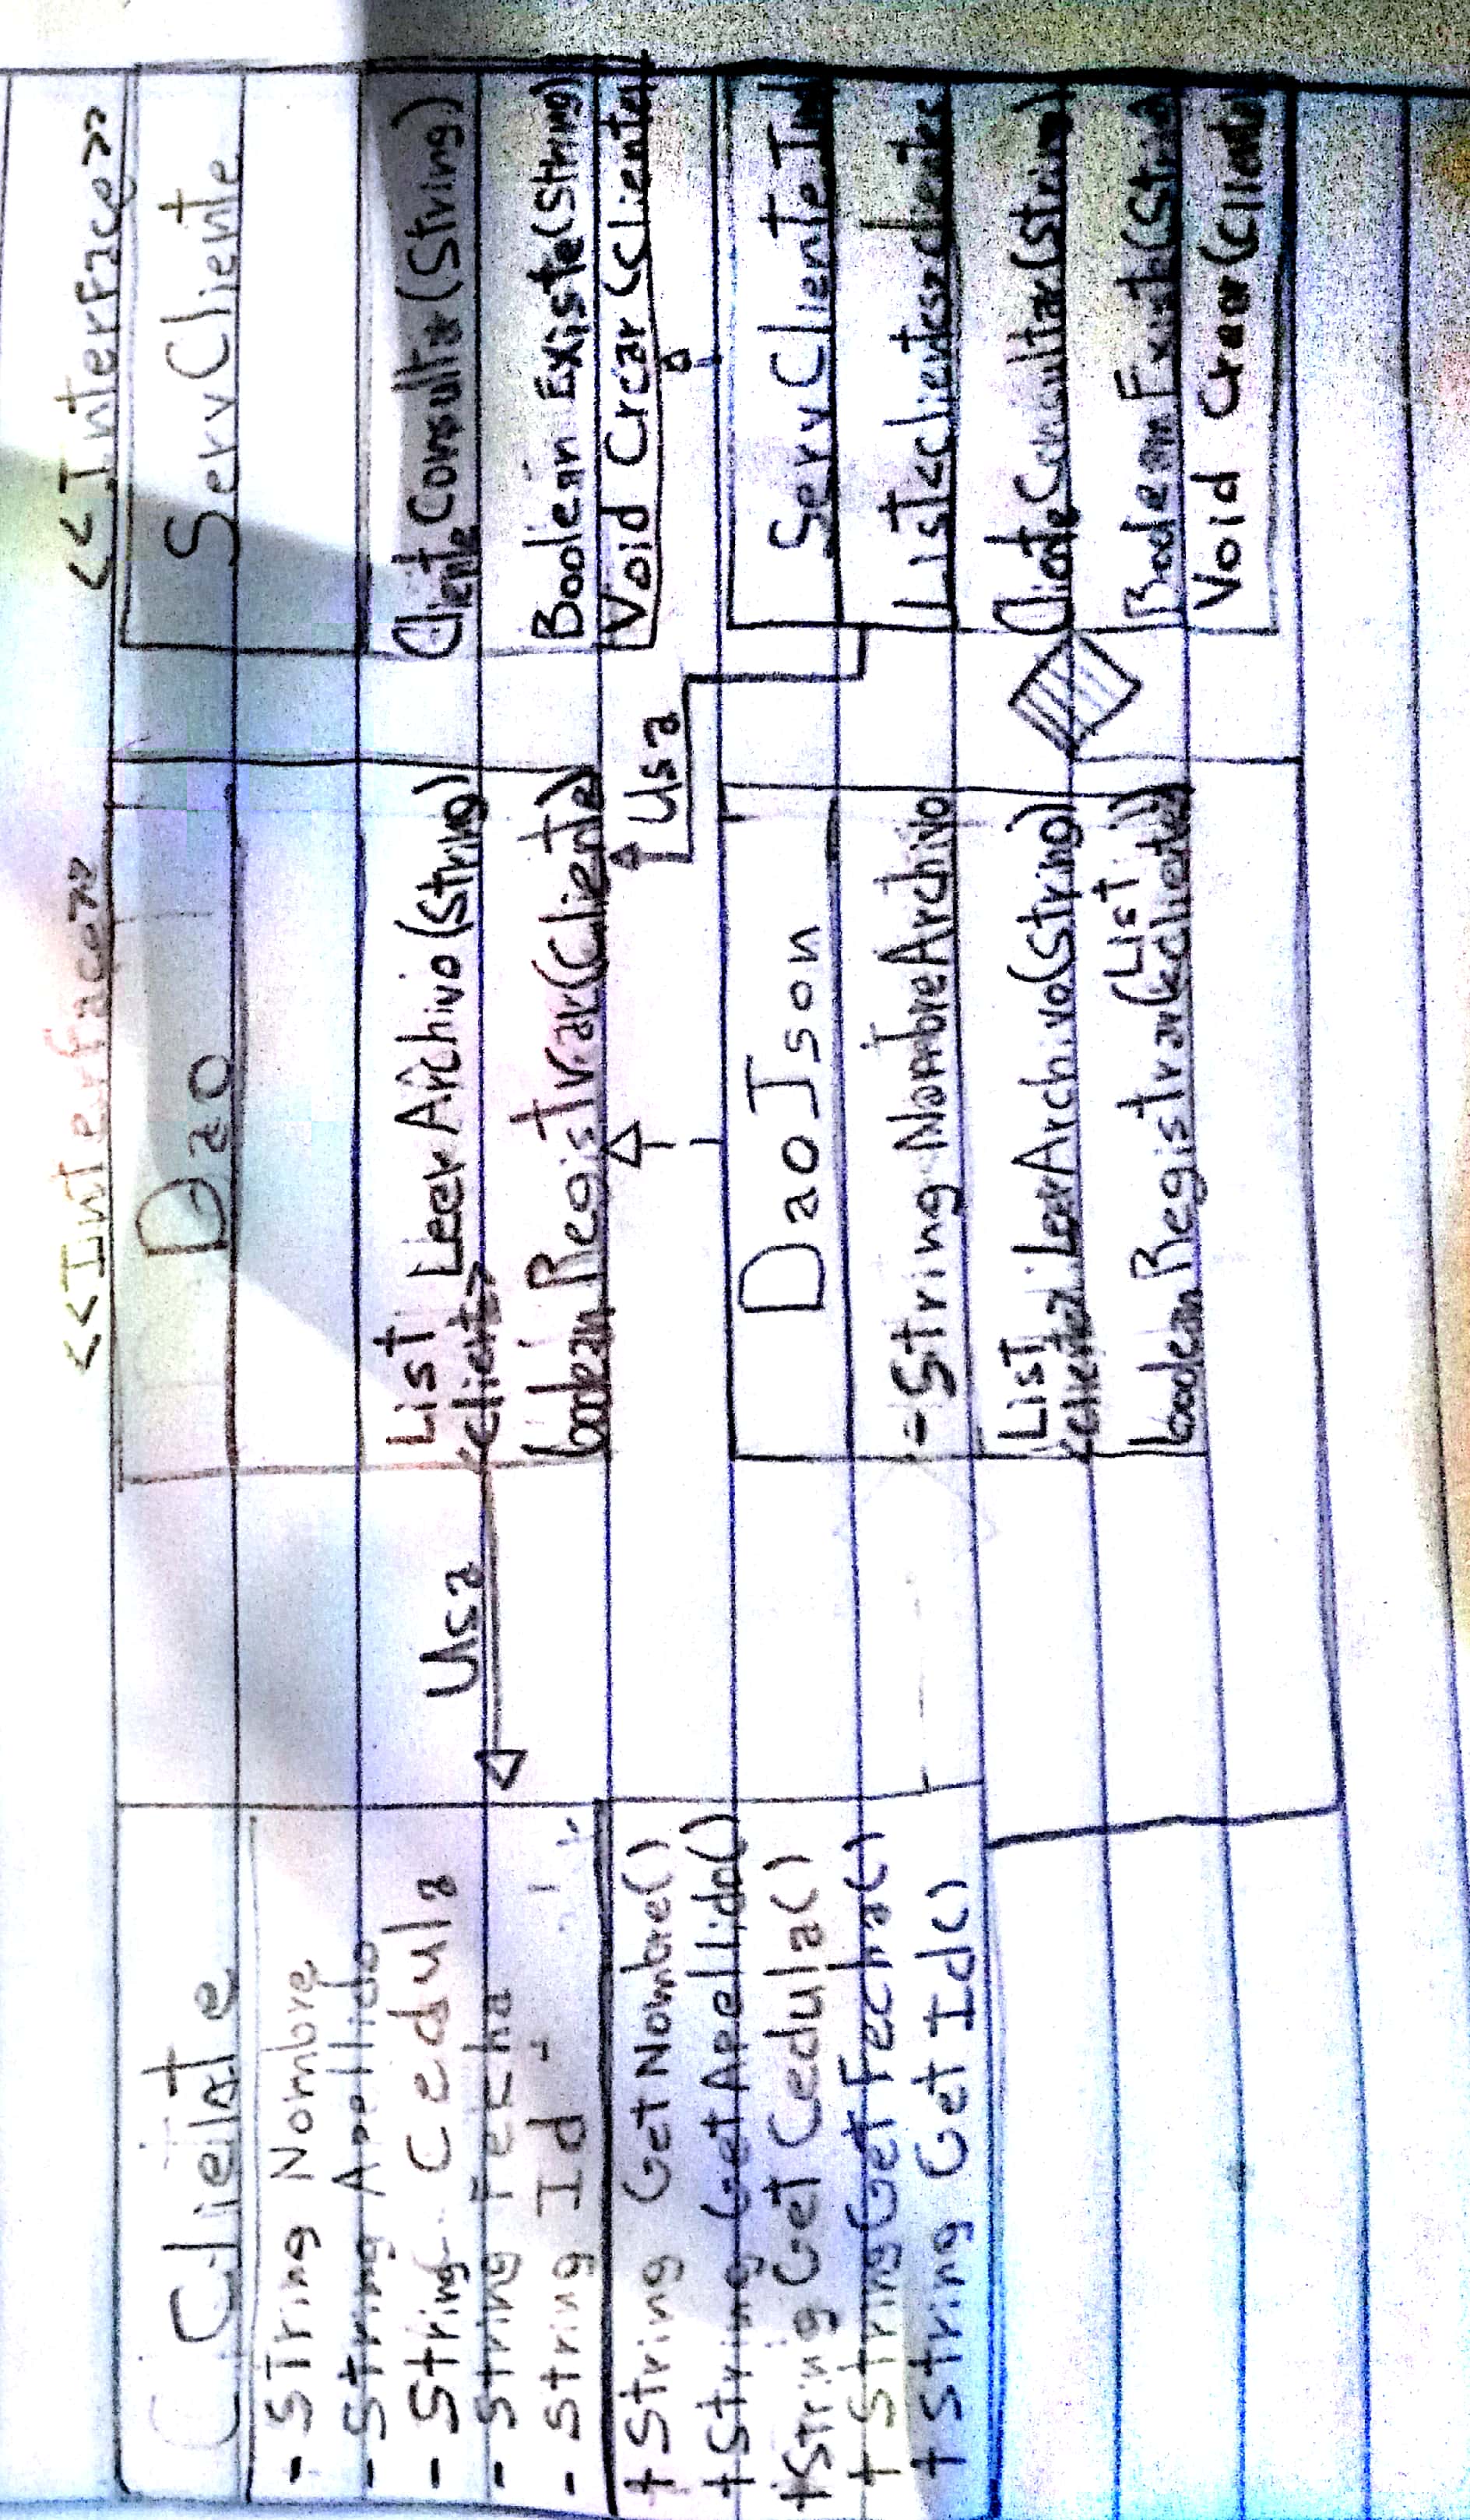 Cliente
- String Nombre
- String Apellido
- String Cedula
- String Fecha
- String Id
+ String GetNombre()
+ String GetApellido()
+ String Get Cedula()
+ String Get Fecha()
+ String Get Id()
Usa
<<Interface>>
Dao
List LeerArchivo(String)
<cliente>
boolean Registrar(Cliente)
DaoJson
- String NombreArchivo
List LeerArchivo(String)
<cliente>
List
boolean Registrar(<cliente>)
Usa
<<Interface>>
ServCliente
Cliente Consulta(String)
Boolean Existe(String)
Void Crear(Cliente
ServCliente
List<clientes>clientes
Cliente Consultar(String)
Boolean Exist(String
Void Crear(Cliente